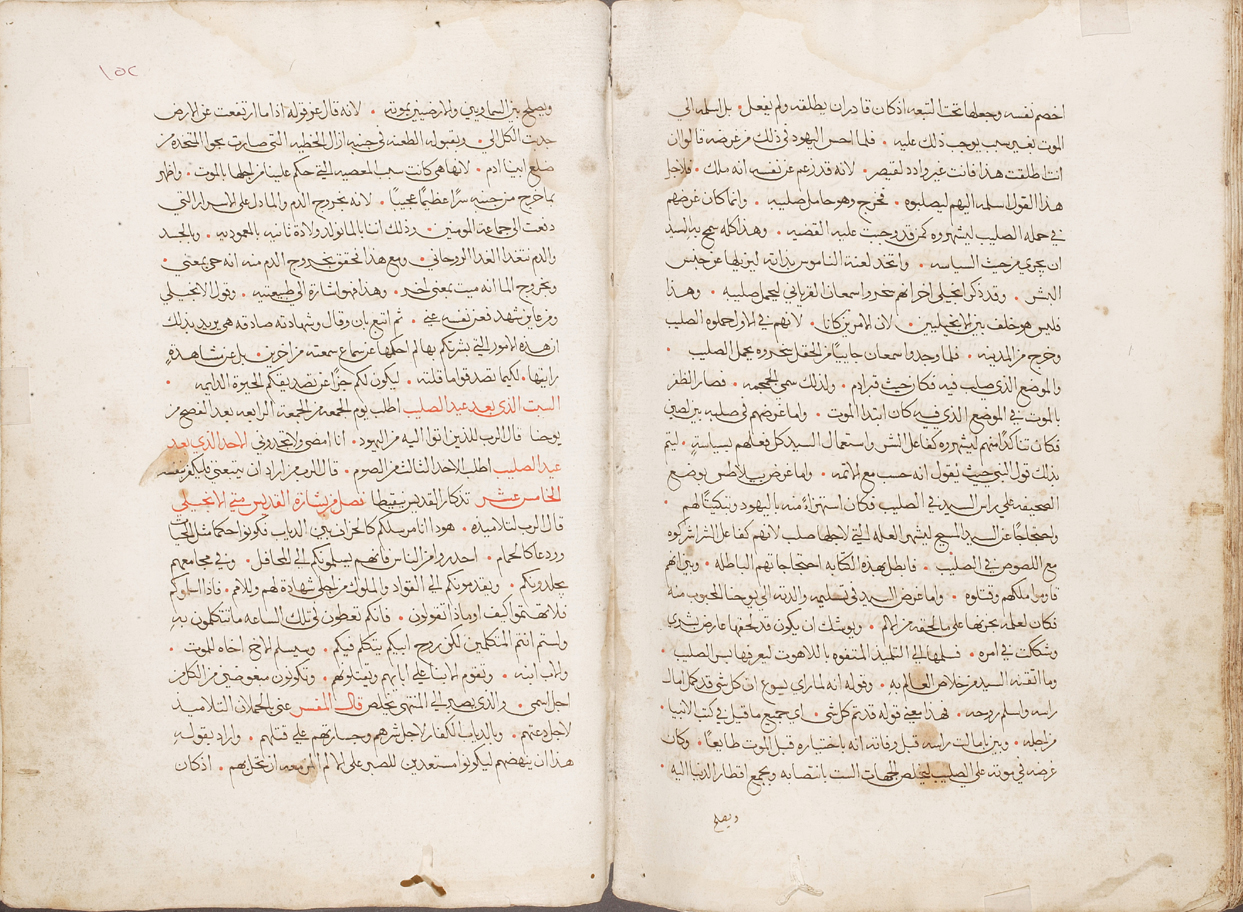 اخصم نفسه وجعلها تحت التبعه اذ كان قادر ان يطلقه ولم يفعل • بل اسلمه الي
الموت لغير سبب يوجب ذلك عليه • فلما احس اليهود في ذلك من غرضه قالوا ان
انت اطلقت هذا فانت غير وادد لقيصر • لانه قد زعم عن نفسه انه ملك • فلاجل
هذا القول اسلمه اليهم ليصلبوه • فخرج وهو حامل صليبه • وانما كان غرضهم
في حمله الصليب ليشهروه كمن قد وجبت عليه القضيه • وهذا كله سمح به السيد
ان يجري من حيث السياسه • واتخذ لعنة الناموس بذاته ليزيلها عن جنس
البشر • وقد ذكر انجيلي اخر انهم سخروا سمعان القرياني ليحمل صليبه • وهذا
فليس هو خلف بين الانجيليين • لان الامرين كانا • لانهم في الاول حملوه الصليب
وخرج من المدينه • فلما وجدوا سمعان جاييا من الحقل سخروه بحمل الصليب •
والموضع الذي صلب فيه فكان حيث قبر ادم • ولذلك سمي الجمجمه • فصار الظفر
بالموت في الموضع الذي فيه كان ابتدا الموت • واما غرضهم في صلبه بين لصين
فكان تاكدا منهم ليشهروه كفاعل الشر واستعمال السيد كل فعلهم بسياسةٍ • ليتم
بذلك قول النبي حيث يقول انه حسب مع الاثمه • واما غرض بيلاطس بوضع
الصحيفه علي راس السيد في الصليب فكان استهزاء منه باليهود وتبكيتا لهم •
واحتجاجا عن السيد المسيح ليشهر العله التي لاجلها صلب لانهم كفاعل الشر اشركوه
مع اللصوص في الصليب • فابطل بهذه الكتابه احتجاجاتهم الباطله • وبين انهم
قاوموا ملكهم وقتلوه • واما غرض السيد في تسليمه والدته الي يوحنا المحبوب منه
فكان لعلمه بحزنها علي ما لحقه من الالم • ويوشك ان يكون قد لحقها عارض بشري
وشكت في امره • فسلمها الي التلميذ المتفوه باللاهوت ليعرفها بسر الصليب •
وما اتقنه السيد من خلاص العالم به • وقوله انه لما راي يسوع ان كل شي قد كمل امال
راسه واسلم روحه • فهذا يعني قوله قد تم كل شي • اي جميع ما قيل في كتب الانبيا
من اجله • وبين بامالت راسه قبل وفاته انه باختياره قبل الموت طايعا • وكان
غرضه في موته علي الصليب ليخلص الجهات الست بانتصابه ويجمع اقطار الدنيا اليه
ويصلح
١٥٢
ويصلح بين السماويين والارضيين بموته • لانه قال عن قوله اذا ما ارتفعت عن الارض
جدبت الكل الي • وبقبوله الطعنه في جنبه ازال الخطيه التي صارت بحوا المتخذه من
ضلع ابينا ادم • لانها هي كانت سبب المعصيه التي حكم علينا من اجلها بالموت • واظهر
بما خرج من جنبه سرا عظيما عجيبا • لانه بخروج الدم والما دل علي الاسرار التي
دفعت الي جماعة المومنين • وذلك اننا بالما نولد ولادة ثانيه بالعموديه • وبالجسد
والدم نتغدا الغدا الروحاني • ومع هذا تحقق بخروج الدم منه انه حي بمعني •
وبخروج الما انه ميت بمعني اخر • وهذا فهو اشارة الي طبيعتيه • وقول الانجيلي
ومن عاين شهد فعن نفسه عني • ثم اتبع بان وقال وشهادته صادقه هي يريد بذلك
ان هذه الامور التي بشرتكم بها لم احكها عن سماع سمعته من اخرين • بل عن مشاهدةٍ
رايتها • لكيما تصدقوا ما قلته • ليكون لكم جزا عن تصديقكم الحيوة الدايمه •
السبت الذي بعد عيد الصليب اطلب يوم الجمعه من الجمعة الرابعه بعد الفصح من
يوحنا قال الرب للذين اتوا اليه من اليهود • انا امضي ولا تجدوني الاحد الذي بعد
عيد الصليب اطلب الاحد الثالث من الصوم • قال الرب من اراد ان يتبعني فليكفر بنفسه
الخامس عشر تذكار القديس نيقيطا فصل من بشارة القديس متي الانجيلي
قال الرب لتلاميذه • هودا انا مرسلكم كالخراف بين الدياب فكونوا حكما مثل الحيات
وردعا كالحمام • احدروا من الناس فانهم يسلمونكم الي المحافل • وفي مجامعهم
يجلدونكم • ويقدمونكم الي القواد والملوك من اجلي شهادة لهم وللامم • فاذا اسلموكم
فلا تهتموا كيف او ماذا تقولون • فانكم تعطون في تلك الساعه ما تتكلمون بهِ
ولستم انتم المتكلمين لكن روح ابيكم يتكلم فيكم • وسيسلم الاخ اخاه للموت •
والاب ابنه • وتقوم الابنا علي ابايهم ويقتلونهم • وتكونون مبغوضين من الكل من
اجل اسمي • والذي يصبر الي المنتهي يخلص قال المفسر عني بالحملان التلاميذ
لاجل دعتهم • وبالدياب الكفار لاجل شرهم وجسارتهم علي قتلهم • واراد بقولهِ
هذا ان ينهضهم ليكونوا مستعدين للصبر علي الالم المزمعه ان تحل بهم • اذ كان